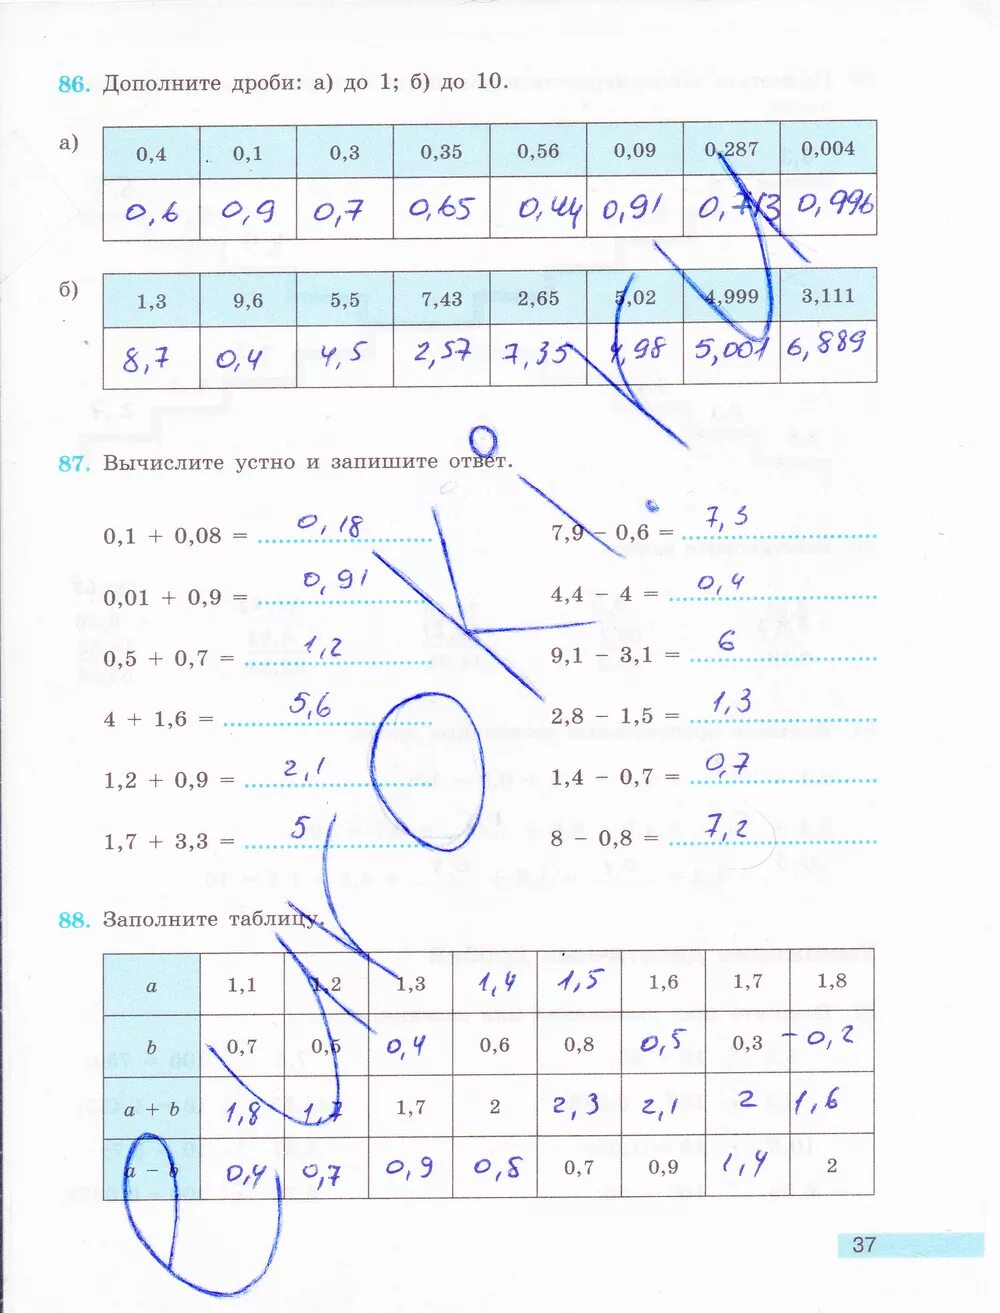 86. Дополните дроби: а) до 1; б) до 10.
а)
0,4 0,1 0,3 0,35 0,56 0,09 0,287 0,004
0,6 0,9 0,7 0,65 0,44 0,91 0,713 0,996
б)
1,3 9,6 5,5 7,43 2,65 5,02 4,999 3,111
8,7 0,4 4,5 2,57 7,35 4,98 5,001 6,889
87. Вычислите устно и запишите ответ.
0,1 + 0,08 = 0,18 7,9 − 0,6 = 7,3
0,01 + 0,9 = 0,91 4,4 − 4 = 0,4
0,5 + 0,7 = 1,2 9,1 − 3,1 = 6
4 + 1,6 = 5,6 2,8 − 1,5 = 1,3
1,2 + 0,9 = 2,1 1,4 − 0,7 = 0,7
1,7 + 3,3 = 5 8 − 0,8 = 7,2
88. Заполните таблицу.
a 1,1 1,2 1,3 1,4 1,5 1,6 1,7 1,8
b 0,7 0,5 0,4 0,6 0,8 0,5 0,3 −0,2
a + b 1,8 1,7 1,7 2 2,3 2,1 2 1,6
a − b 0,4 0,7 0,9 0,8 0,7 0,9 1,4 2
37